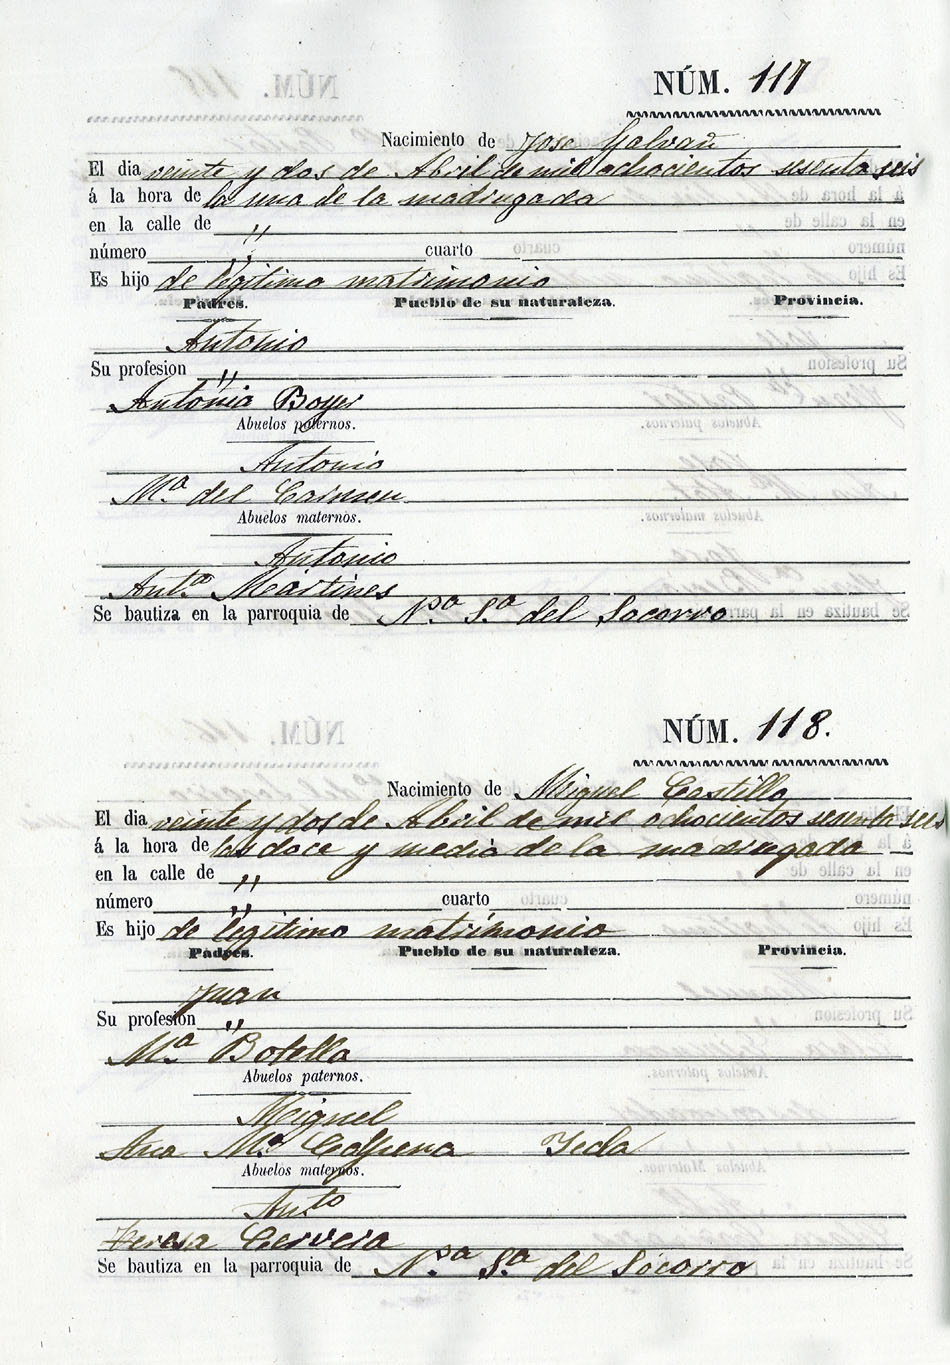 NÚM. 117
Nacimiento de Jose Galvañ
El dia veinte y dos de Abril de mil ochocientos sesenta seis
á la hora de la una de la madrugada
en la calle de "
número " cuarto
Es hijo de legitimo matrimonio
Padres. Pueblo de su naturaleza. Provincia.
Antonio
Su profesion "
Antonia Boyer
Abuelos paternos.
Antonio
Mª del Carmen
Abuelos maternos.
Antonio
Antª Martines
Se bautiza en la parroquia de Nª Sª del Socorro
NÚM. 118.
Nacimiento de Miguel Castillo
El dia veinte y dos de Abril de mil ochocientos sesenta seis
á la hora de las doce y media de la madrugada
en la calle de "
número " cuarto
Es hijo de legitimo matrimonio
Padres. Pueblo de su naturaleza. Provincia.
Juan
Su profesion "
Mª Botella
Abuelos paternos.
Miguel
Ana Mª
Abuelos maternos.
Antº
Teresa Cervera
Se bautiza en la parroquia de Nª Sª del Socorro